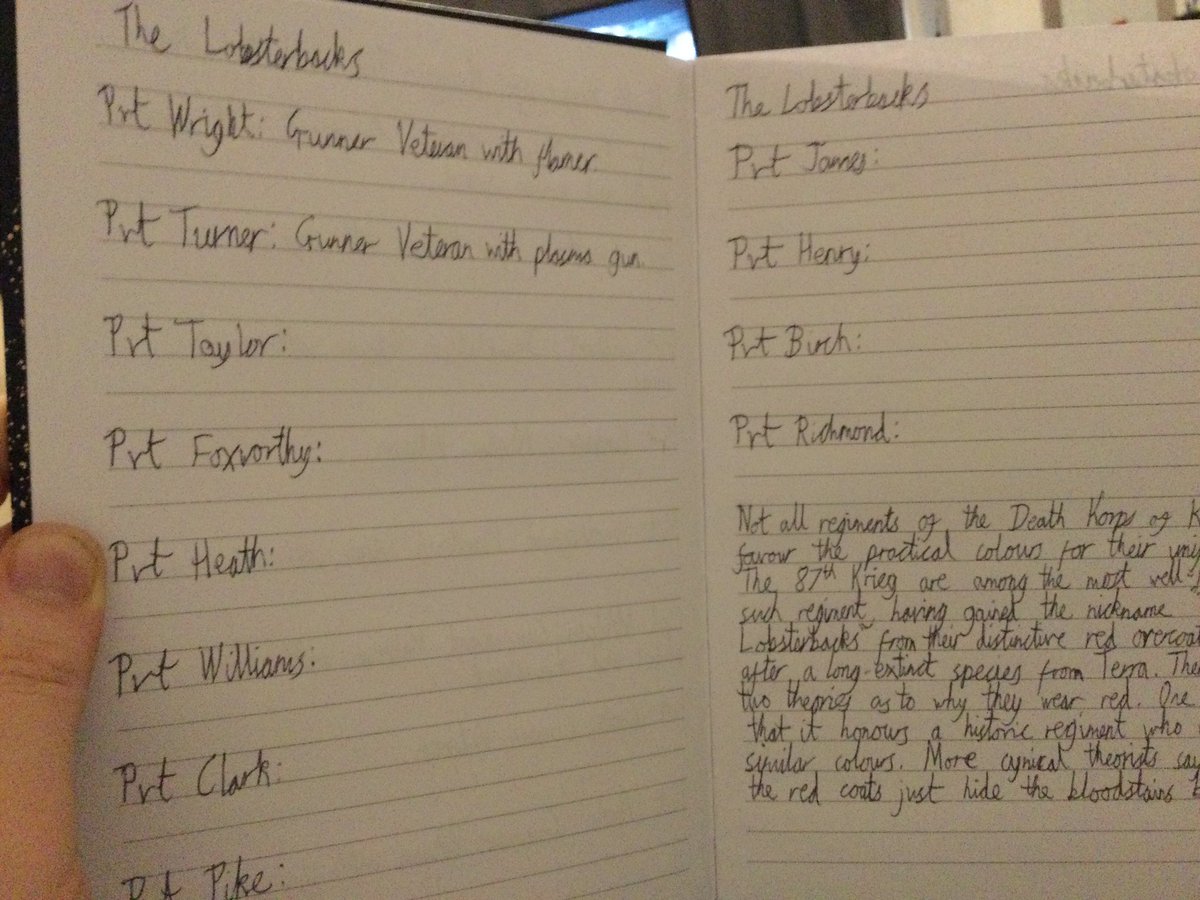 The Lobsterbacks
Prt Wright: Gunner Veteran with flamer.
Prt Turner: Gunner Veteran with plasma gun.
Prt Taylor:
Prt Foxworthy:
Prt Heath:
Prt Williams:
Prt Clark:
Prt Pike:
The Lobsterbacks
Prt James:
Prt Henry:
Prt Birch:
Prt Richmond:
Not all regiments of the Death Korps of
favour the practical colours for their
The 87th Krieg are among the most well-
such regiment, having gained the nickname
Lobsterbacks" from their distinctive red
after a long-extinct species from Terra.
two theories as to why they wear red. One
that it honours a historic regiment who
similar colours. More cynical theorists say
the red coats just hide the bloodstains